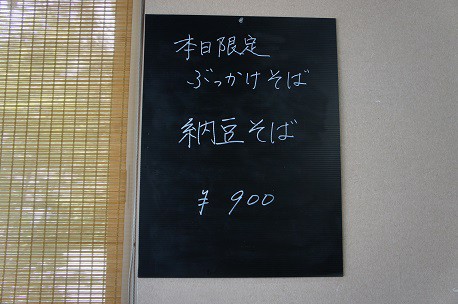 本日限定
ぶっかけそば
納豆そば
¥ 900